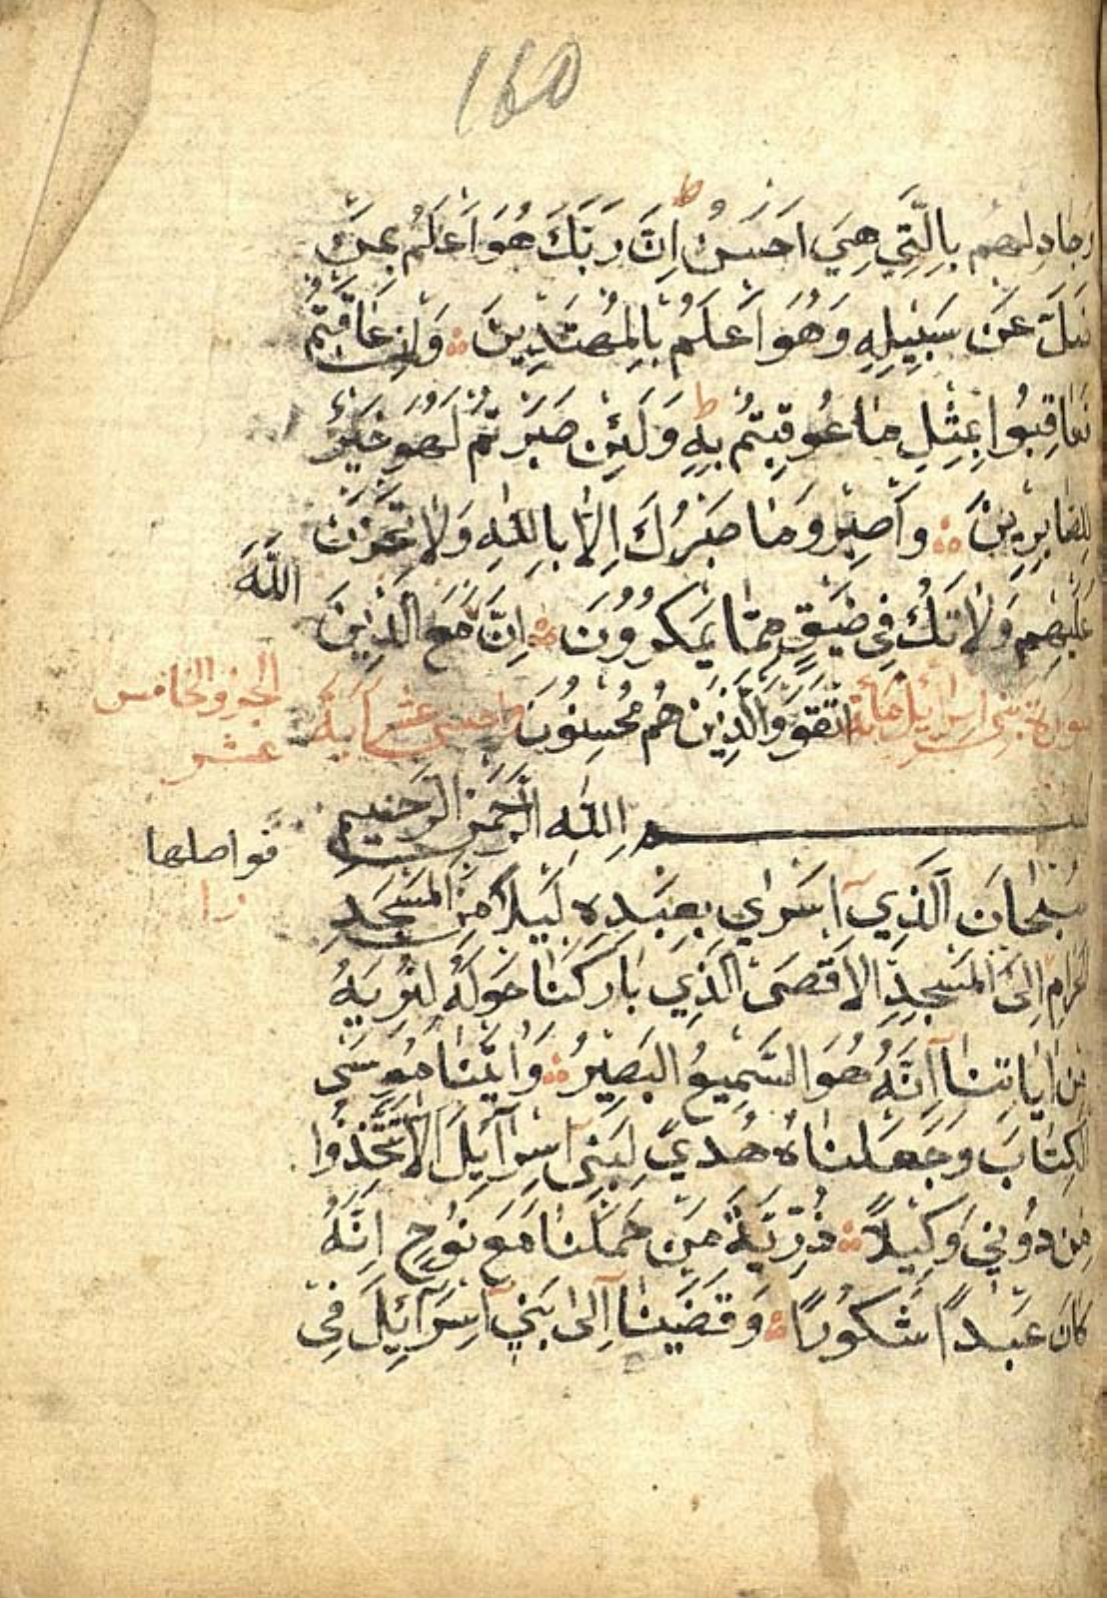 160
وَجَادِلهُم بِالَّتِي هِيَ اَحسَنُ ط اِنَّ رَبَّكَ هُوَ اَعلَمُ بِمَن
ضَلَّ عَن سَبِيلِهِ وَهُوَ اَعلَمُ بِالمُهتَدِينَ وَاِن عَاقَبتُم
فَعَاقِبُوا بِمِثلِ مَا عُوقِبتُم بِهِ ط وَلَئِن صَبَرتُم لَهُوَ خَيرٌ
لِلصَّابِرِينَ وَاصبِر وَمَا صَبرُكَ اِلَّا بِاللّٰهِ وَلَا تَحزَن
عَلَيهِم وَلَا تَكُ فِي ضَيقٍ مِمَّا يَمكُرُونَ اِنَّ مَعَ الَّذِينَ
اللّٰهَ
سورة بني اسرائيل مائة اتَّقَوا وَالَّذِينَ هُم مُحسِنُونَ واحدى عشر آية
الجزو الخامس
عشر
بسم اللّٰه الرَّحمٰنِ الرَّحِيمِ
فواصلها
را
سُبحَانَ الَّذِي اَسرٰي بِعَبدِه لَيلًا مِنَ المَسجِدِ
الحَرَامِ اِلَى المَسجِدِ الاَقصَى الَّذِي بَارَكنَا حَولَهُ لِنُرِيَهُ
مِن اٰيَاتِنَا اِنَّهُ هُوَ السَّمِيعُ البَصِيرُ وَاٰتَينَا مُوسَى
الكِتَابَ وَجَعَلنَاهُ هُدًى لِبَنِي اِسرَآئِلَ اَلَّا تَتَّخِذُوا
مِن دُونِي وَكِيلًا ذُرِّيَّةَ مَن حَمَلنَا مَعَ نُوحٍ اِنَّهُ
كَانَ عَبدًا شَكُورًا وَقَضَينَا اِلٰى بَنِي اِسرَآئِلَ فِي